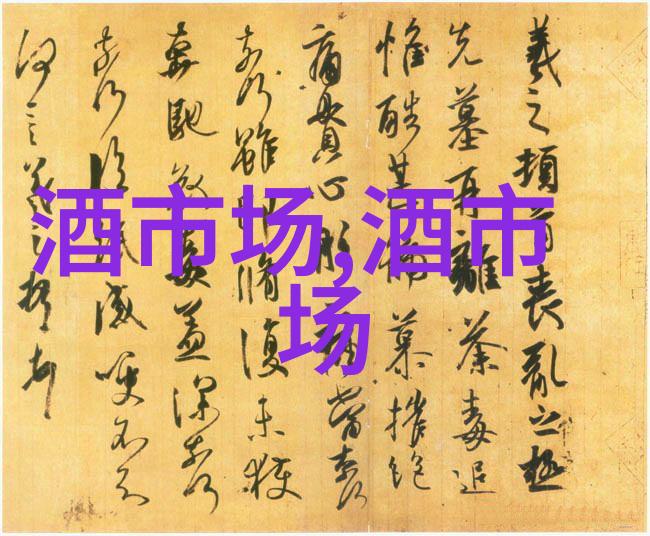 酒市场,酒市
场
羲之頓首喪亂之極
先墓再離荼毒追
惟酷甚號慕摧絕
痛貫心肝痛當奈何
奈何雖即脩復未獲
奔馳哀毒益深奈何
奈何臨紙感哽不知
何言羲之頓首